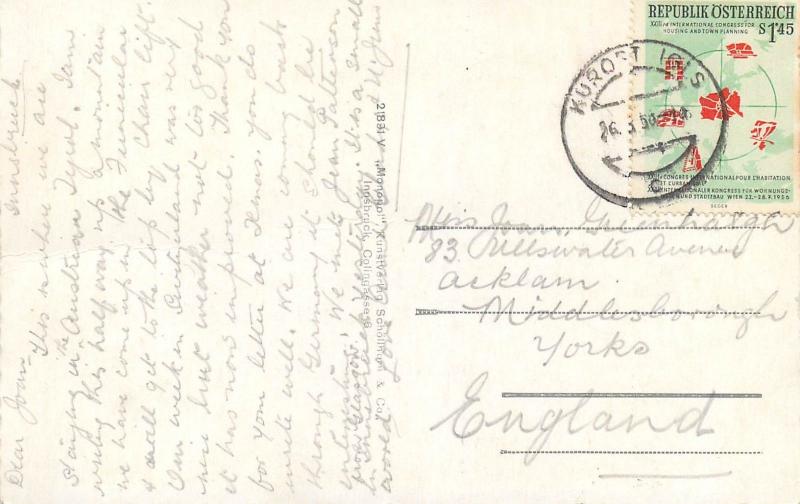 Innsbruck
Dear Joan
This is where we are
staying in the Austrian Tyrol. I am
writing this half way up a mountain
we have come up in the Funicular
& will get to the top by chair lift.
Our week in Switzerland was very
nice but weather not so good
it has now improved. Thank you
for your letter at Xmas. you do
write well. We are coming back
through Germany it should be
interesting. We met Jean Patterson
from Glasgow yesterday. It is a small
world. Love
21831 V „Monopol" Kunstverlag Schöllhorn & Co.,
Innsbruck, Colingasse
REPUBLIK ÖSTERREICH
XXIII RD INTERNATIONAL CONGRESS FOR
HOUSING AND TOWN PLANNING
S 1·45
KURORT IGLS
XXIII E CONGRES INTERNATIONAL POUR L'HABITATION
ET L'URBANISME
INTERNATIONALER KONGRESS FÜR WOHNUNGS-
UND STÄDTEBAU WIEN 22.-28.7.1956
SEGER
Miss Joan Greenhalgh
83, Ullswater Avenue
Acklam
Middlesborough
Yorks
England